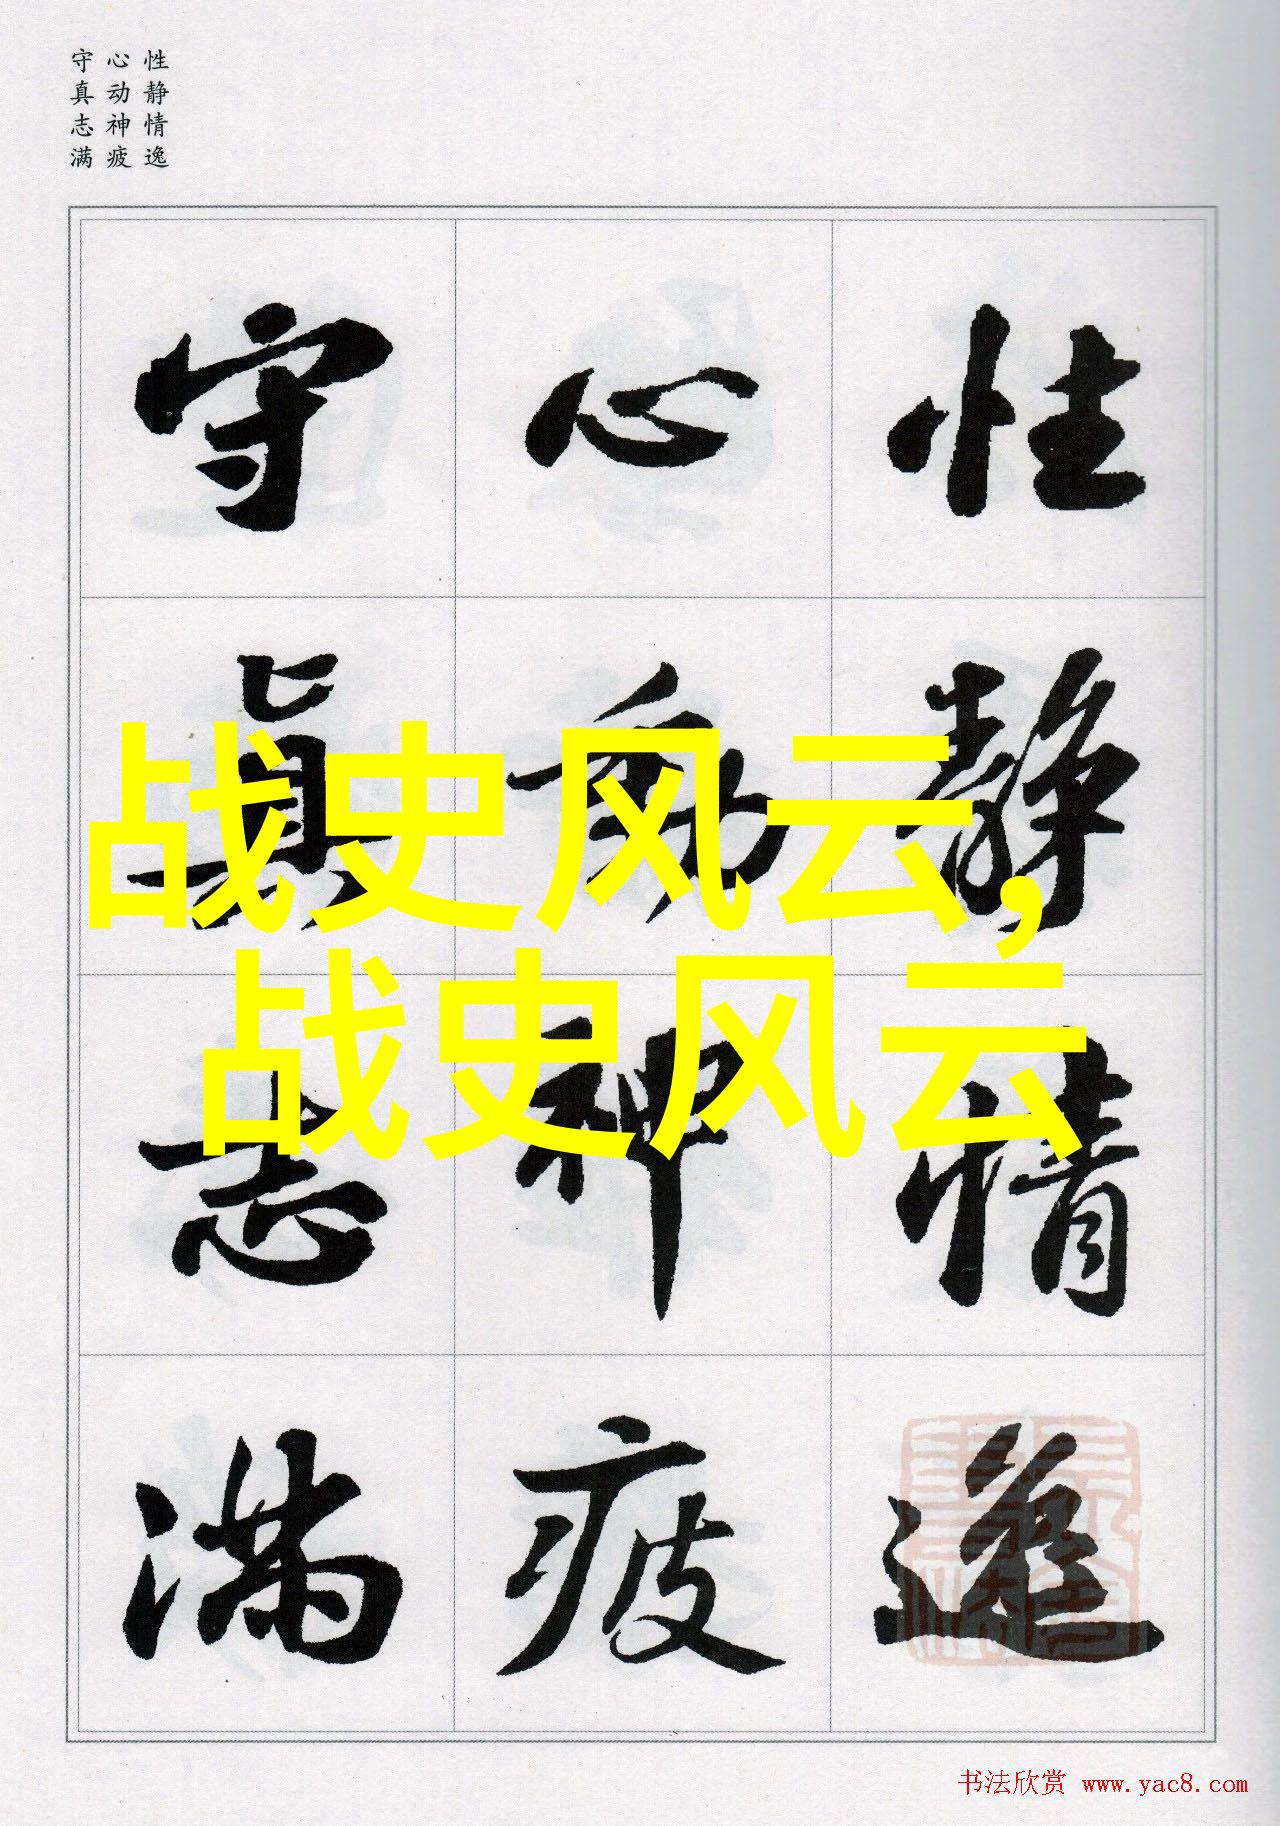 性静情逸
心动神疲
守真志满
性静情逸
心動神疲
守真志满
战史风云,
战史风云
书法欣赏 www.yac8.com